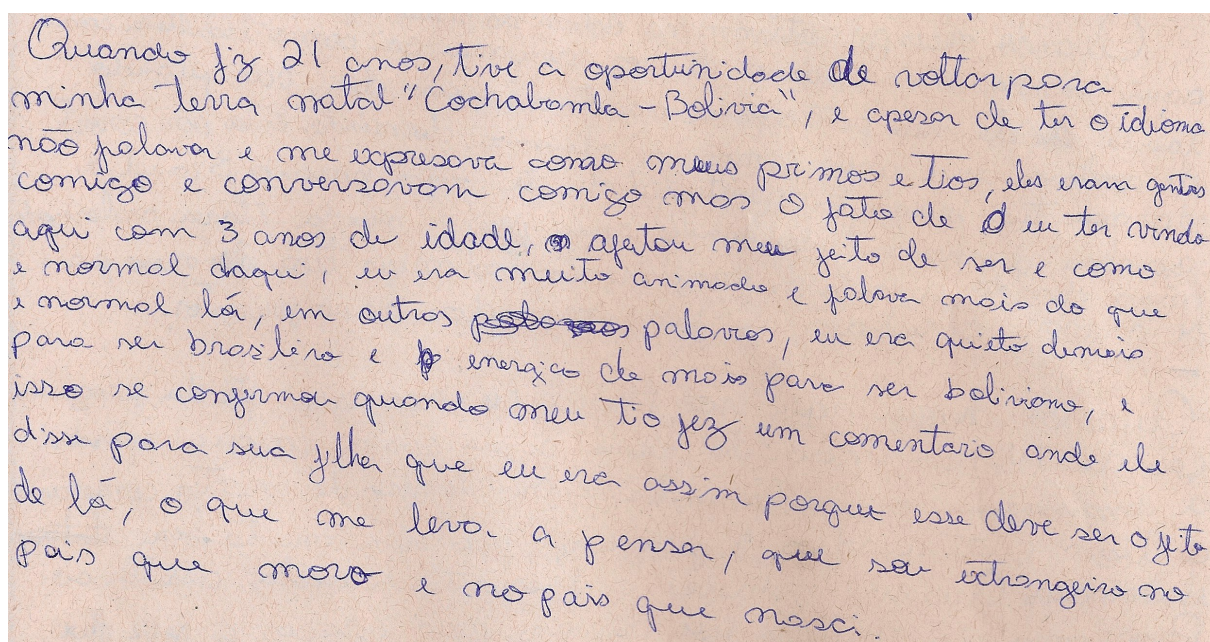 Quando fiz 21 anos, tive a oportunidade de voltar para
minha terra natal "Cochabamba - Bolivia", e apesar de ter o idioma
não falava e me expresava como meus primos e tios, eles eram gentis
comigo e conversavam comigo mas o fato de eu ter vindo
aqui com 3 anos de idade, afetou meu jeito de ser e como
e normal daqui, eu era muito animado e falava mais do que
e normal lá, em outras palavras, eu era quieto demais
para ser brasileiro e energico de mais para ser boliviano, e
isso se confirmou quando meu tio fez um comentaro onde ele
disse para sua filha que eu era assim porque esse deve ser o jeito
de lá, o que me leva a pensar, que sou extrangeiro no
pais que moro e no pais que nasci.